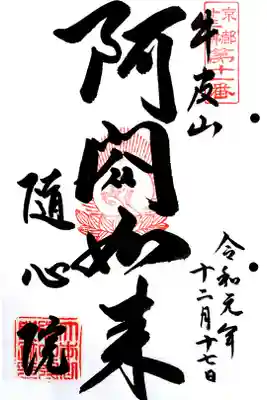 京都
十三佛
第十一番
牛皮山
阿閦如来
随心院
令和元年
十二月十七日